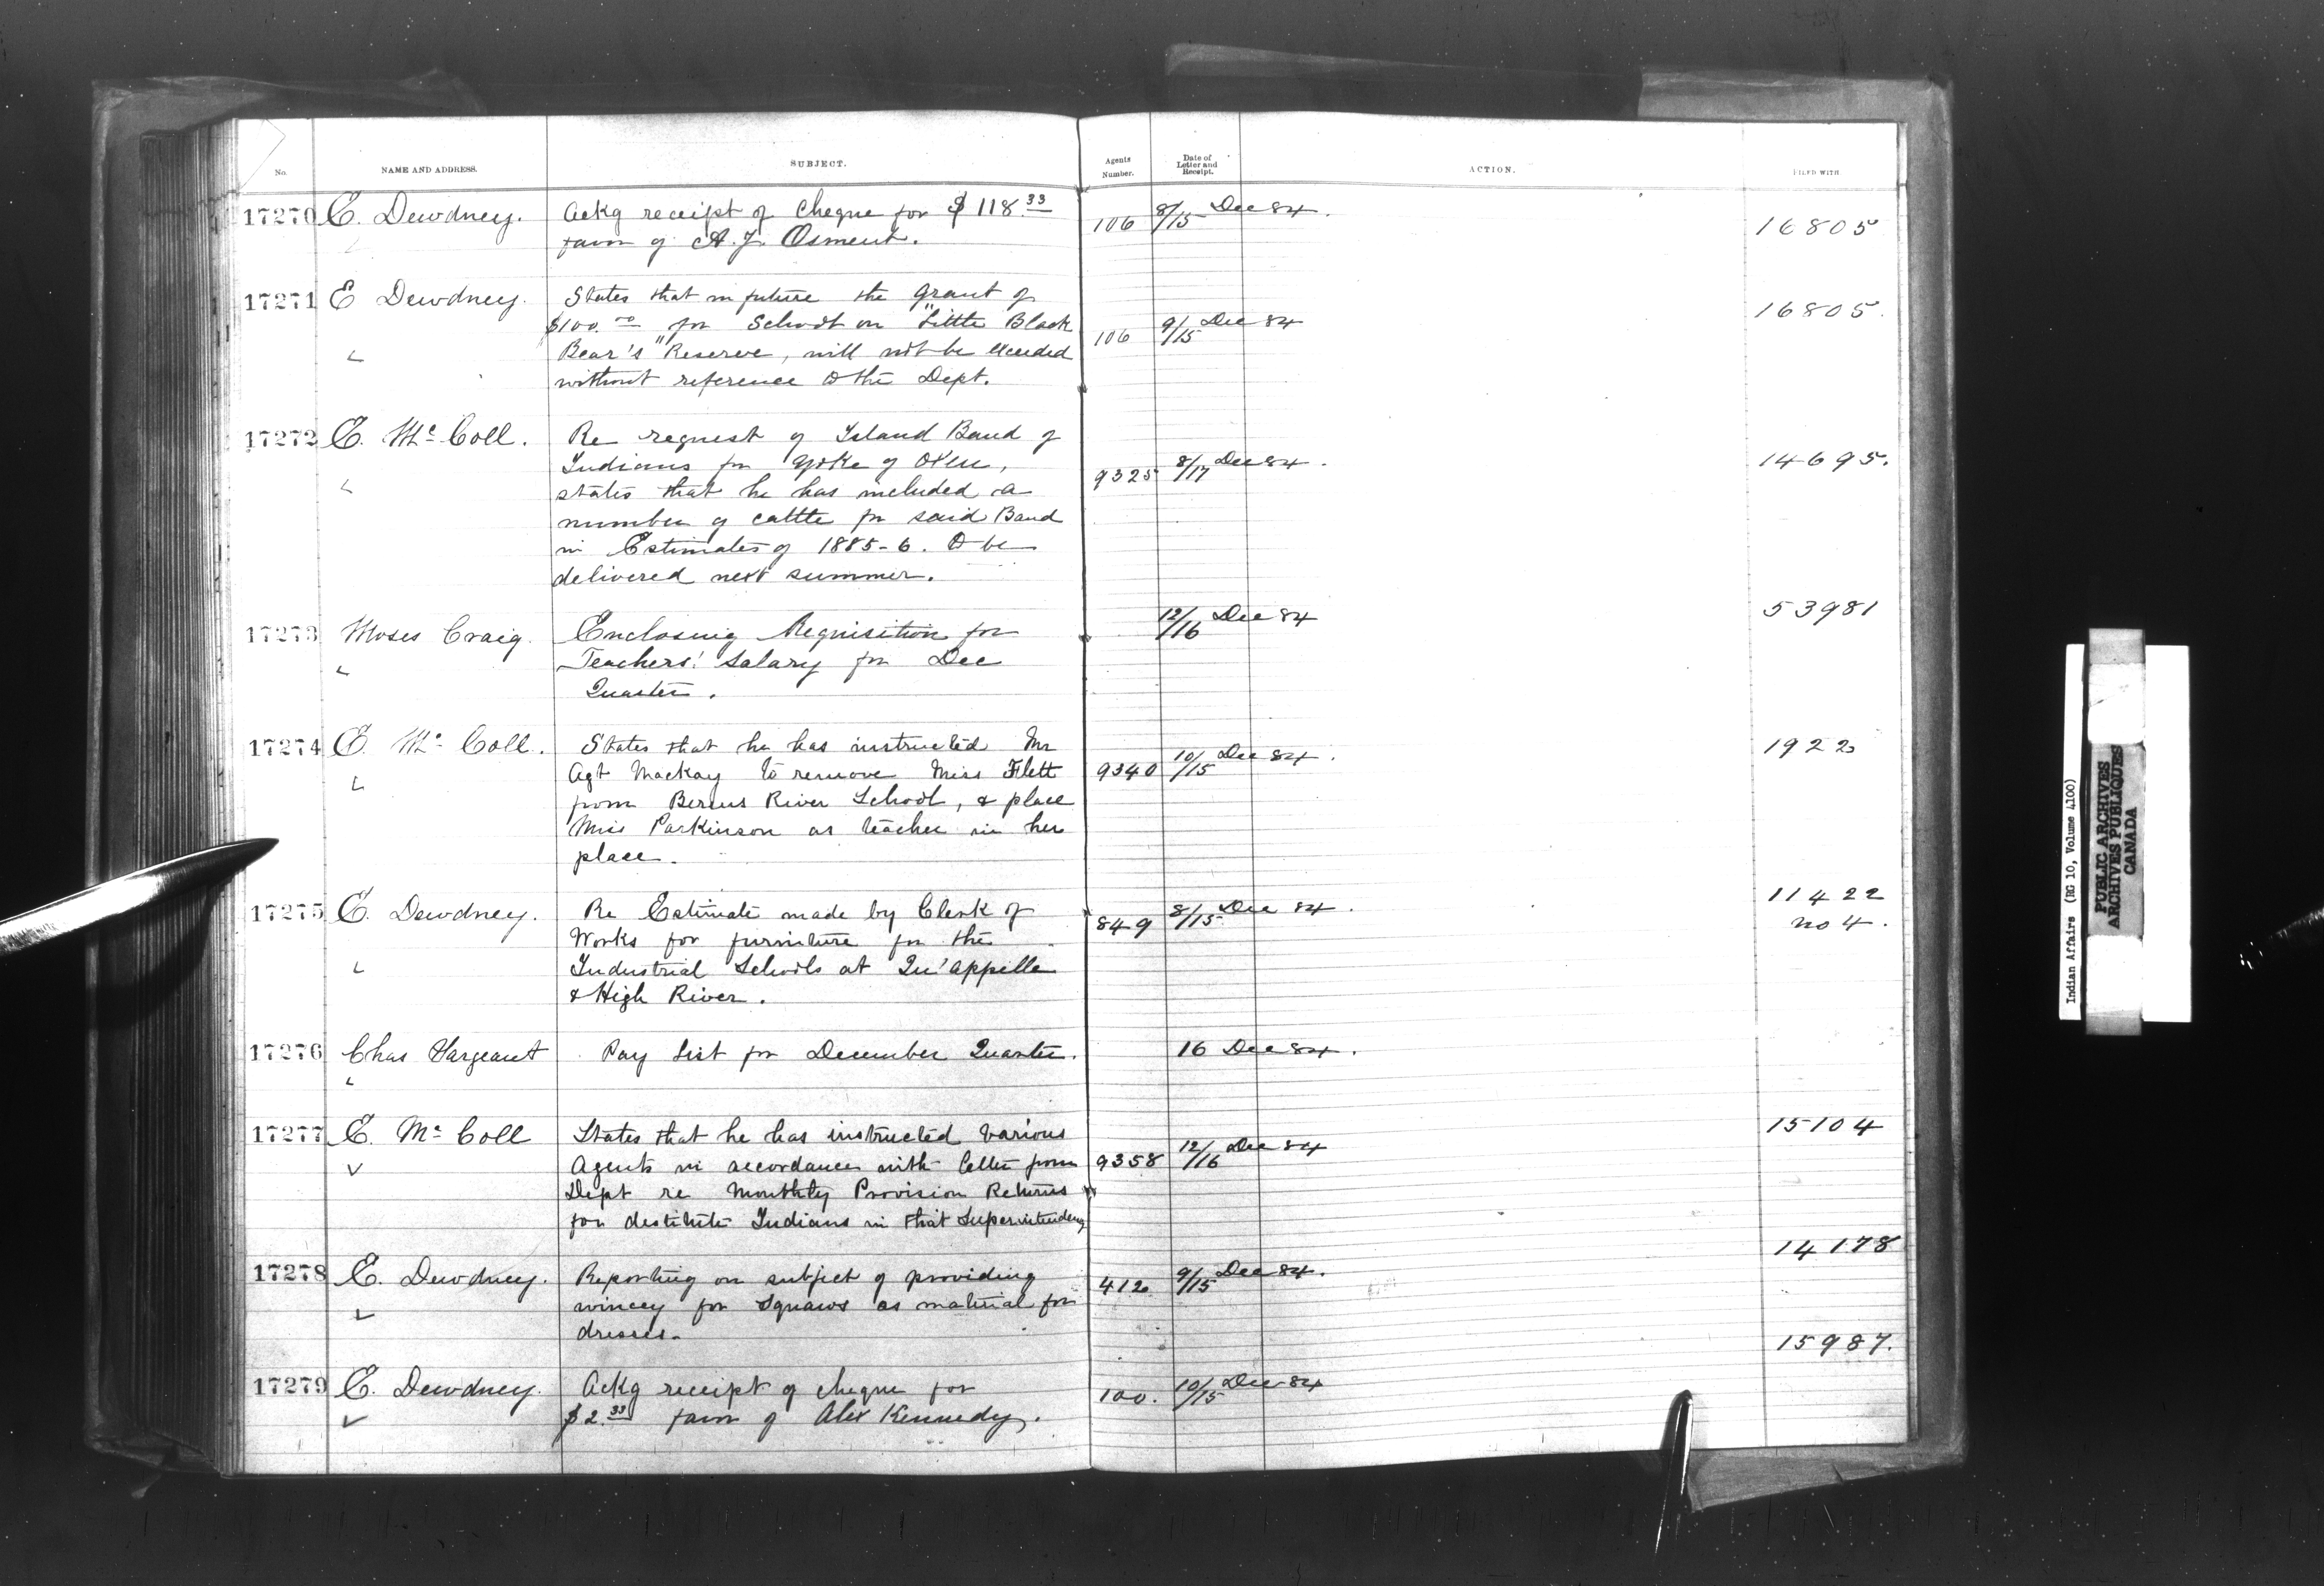 No. NAME AND ADDRESS. SUBJECT. Agents Number. Date of Letter and Receipt. ACTION. FILED WITH
17270 E. Dewdney. Ackg receipt of Cheque for $118.33 106 8/15 Dec 84. 16805
favor of A. J. Osment.
17271 E Dewdney. States that in future the grant of 16805.
$100.00 for School on "Little Black 106 9/15 Dec 84
Bear's" Reserve, will not be exceeded
without reference to the Dept.
17272 E. McColl. Re request of Island Band of
Indians for yoke of oxen, 9325 8/17 Dec 84. 14695.
states that he has included a
number of cattle for said Band
in Estimates of 1885-6. to be
delivered next summer.
17273 Moses Craig. Enclosing Requisition for 12/16 Dec 84 53981
Teachers' Salary for Dec
Quarter.
17274 E. McColl. States that he has instructed Mr 1922
Agt Mackay to remove Miss Flett 9340 10/15 Dec 84.
from Berens River School, & place
Miss Parkinson as teacher in her
place.
17275 E. Dewdney. Re Estimate made by Clerk of 849 8/15 Dec 84. 11422
Works for furniture for the no 4.
Industrial Schools at Qu'appelle
& High River.
17276 Chas Sargeant Pay List for December Quarter. 16 Dec 84.
17277 E. McColl States that he has instructed various 15104
Agents in accordance with letter from 9358 12/16 Dec 84
Dept re Monthly Provision Returns
for destitute Indians in that Superintendency
17278 E. Dewdney. Reporting on subject of providing 412 9/15 Dec 84. 14178
wincey for squaws as material for
dresses.
17279 E. Dewdney. Ackg receipt of cheque for 100. 10/15 Dec 84 15987.
$2.33 favor of Alex Kennedy.
Indian Affairs (RG 10, Volume 4100)
PUBLIC ARCHIVES
ARCHIVES PUBLIQUES
CANADA